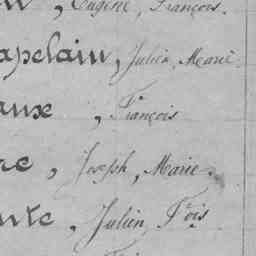 , Eugène, François.
apelain, Julien, Marie
aux, François
re, Joseph, Marie.
arte, Julien, Fois